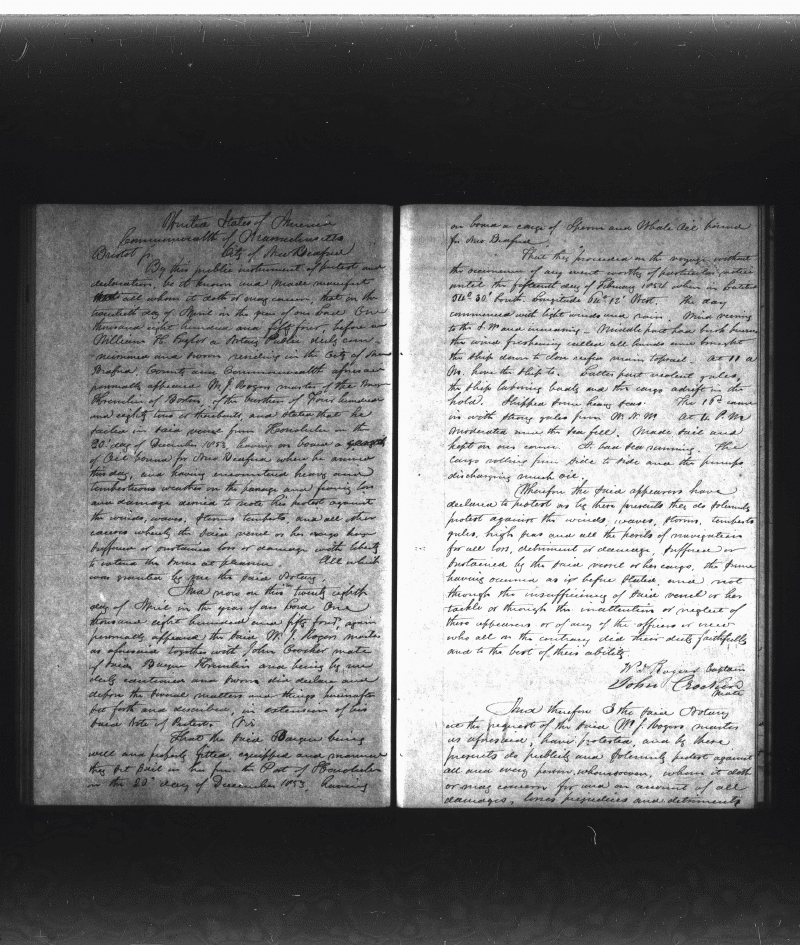 United States of America
Commonwealth of Massachusetts
Bristol ss. City of New Bedford
By this public instrument of protest and
declaration, be it known and made manifest
all whom it doth or may concern, that on the
twentieth day of April in the year of our Lord One
thousand eight hundred and fifty four, before me
William H. Taylor a Notary Public duly com-
missioned and sworn residing in the City of New
Bedford, County and Commonwealth aforesaid
personally appeared W. J. Rogers master of the Barque
of Boston, of the burthen of Four hundred
and eighty tons or thereabouts, and stated that he
sailed in said vessel from Honolulu on the
20th day of December 1853, having on board a
of Oil bound for New Bedford where he arrived
this day, and having encountered heavy and
tempestuous weather on the passage and fearing loss
and damage desired to note this protest against
the winds, waves, storms tempests, and all other
causes whereby the said vessel or her cargo have
suffered or sustained loss or damage with liberty
to extend the same at pleasure. All which
was granted by me the said Notary.
And now on this twenty eighth
day of April in the year of our Lord One
thousand eight hundred and fifty four, again
personally appeared the said W. J. Rogers master
as aforesaid together with John Crocker mate
of said Barque and being by me
duly cautioned and sworn did declare and
depose the several matters and things hereinafter
set forth and described, in extension of his
said Note of Protest. Viz
That the said Barque being
well and properly fitted, equipped and manned
they set sail in her from the Port of Honolulu
on the 20th day of December 1853 having
on board a cargo of Sperm and Whale Oil bound
for New Bedford.
That they proceeded on the voyage without
the occurrence of any event worthy of particular notice
until the fifteenth day of February 1854 when in Latitude
30' South Longitude 12' West. The day
commenced with light winds and rain. Wind veering
to the S. W and increasing - Middle part had
the wind freshening called all hands and brought
the ship down to close reefed main topsail. At 11 A
M. hove the ship to. Latter part violent gales,
the ship laboring badly and the cargo adrift in the
hold. Shipped some heavy seas. The 16th came
in with strong gales from W. N. W. At P. M.
moderated and the sea fell. Made sail and
kept on our course. A bad sea running. The
cargo rolling from side to side and the pumps
discharging much oil.
Wherefore the said appearers have
declared to protest as by these presents they do solemnly
protest against the winds, waves, storms, tempests
gales, high seas and all the perils of navigation
for all loss, detriment or damage, suffered or
sustained by the said vessel or her cargo, the same
having occurred as is before stated, and not
through the insufficiency of said vessel or her
tackle or through the inattention or neglect of
these appearers or of any of the officers or crew
who all on the contrary did their duty faithfully
and to the best of their ability.
Wm J Rogers Captain
John Crocker
Mate
And therefore I the said Notary
at the request of the said Wm J. Rogers master
as aforesaid, have protested, and by these
presents do publicly and solemnly protest against
all and every person whomsoever, whom it doth
or may concern for and on account of all
damages, losses prejudices and detriments